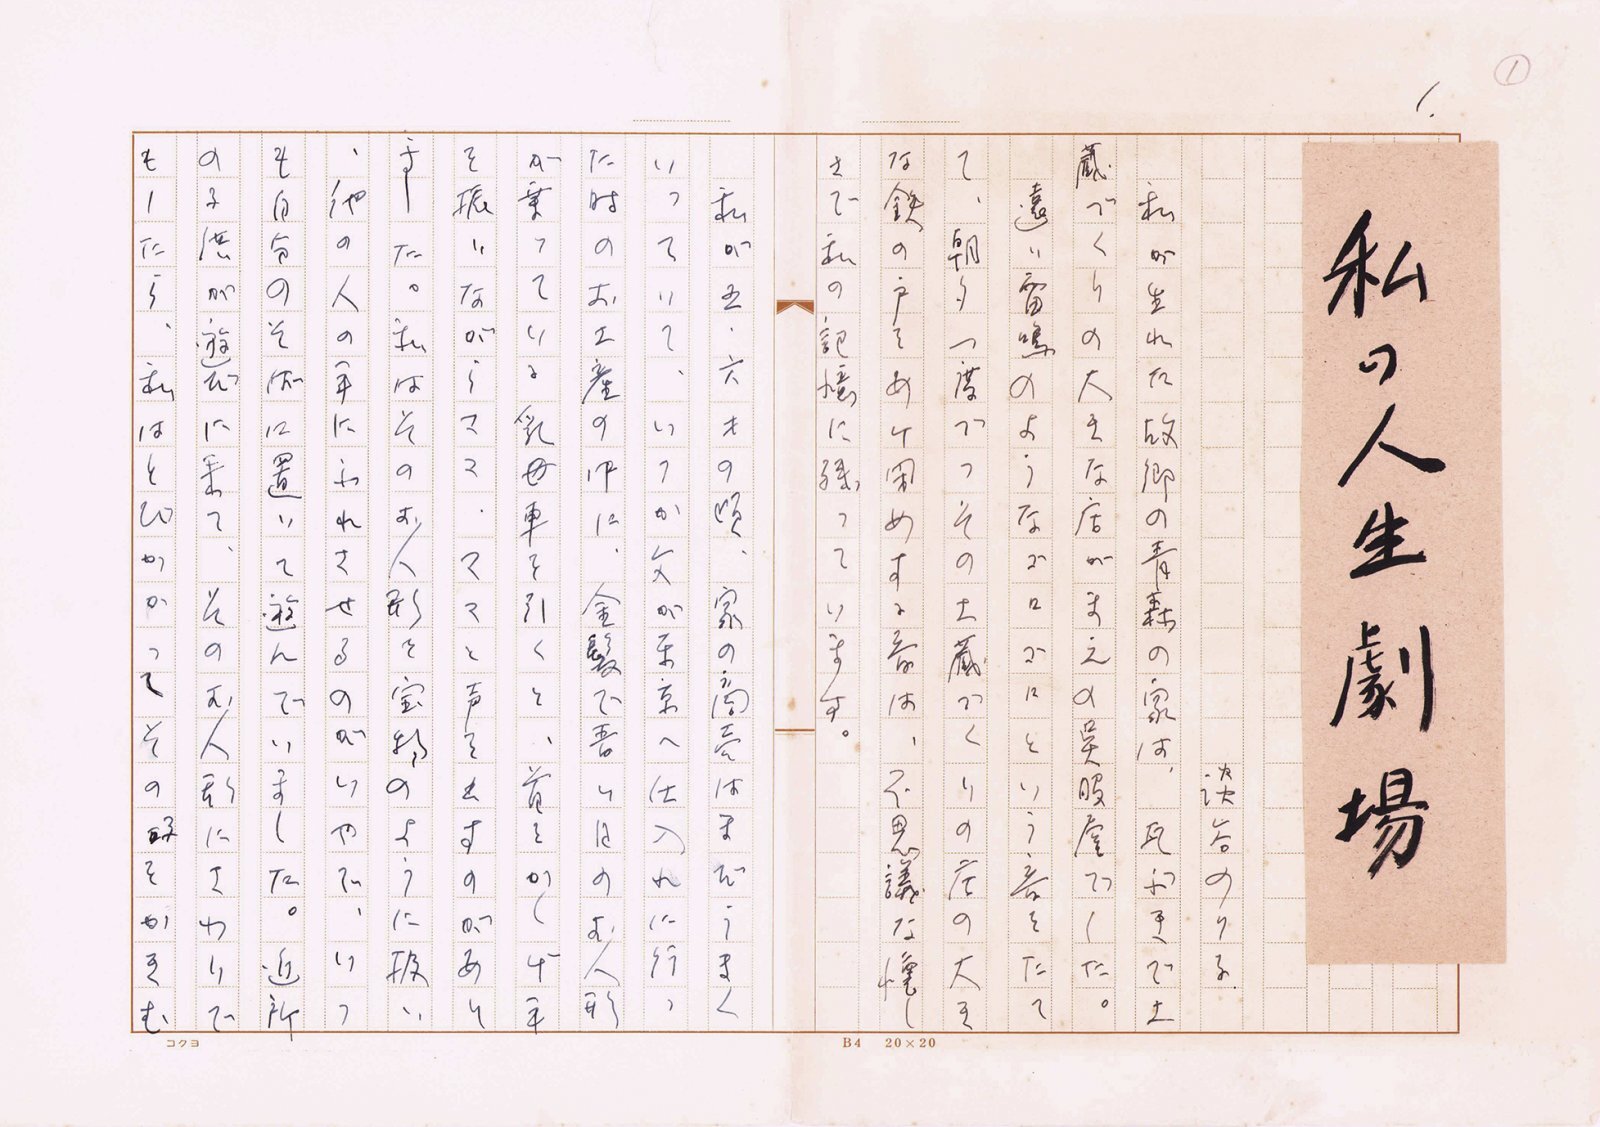 ①
1.
私の人生劇場
渋谷のり子
私が生れた故郷の青森の家は、瓦ぶきで土
蔵づくりの大きな店がまえの呉服屋でした。
遠い雷鳴のようなゴロゴロという音をたて
て、朝夕一度づつその土蔵づくりの店の大き
な鉄の戸をあけ閉めする音は、不思議な懐し
さで私の記憶に残っています。
私が五・六才の頃、家の商売はまだうまく
いっていて、いつか父が東京へ仕入れに行っ
た時のお土産の中に、金髪で青い目のお人形
が乗っている乳母車を引くと、首をかしげ手
を振いながらママ・ママと声を出すのがあり
ました。私はそのお人形を宝物のように扱い
、他の人の手にふれさせるのがいやで、いつ
も自分のそばに置いて遊んでいました。近所
の子供が遊びに来て、そのお人形にさわりで
もしたら、私はとびかかってその 子をかきむ
コクヨ
B4 20×20